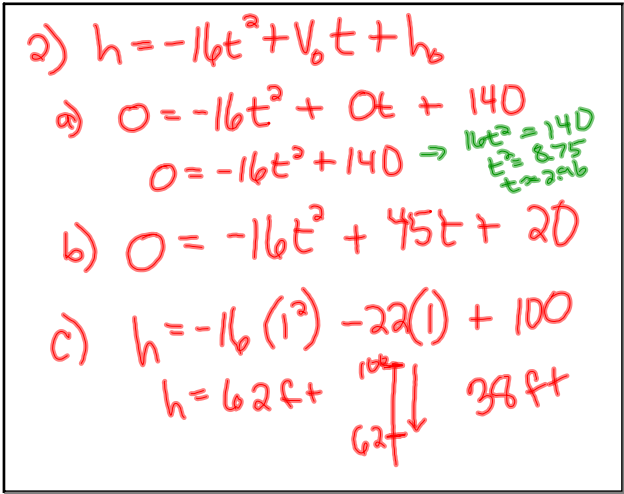 2) h = -16t² + V₀t + h₀
a) 0 = -16t² + 0t + 140
0 = -16t² + 140 → 16t² = 140
t² = 8.75
t ≈ 2.96
b) 0 = -16t² + 45t + 20
c) h = -16(1²) - 22(1) + 100
h = 62ft
100
62
38 ft